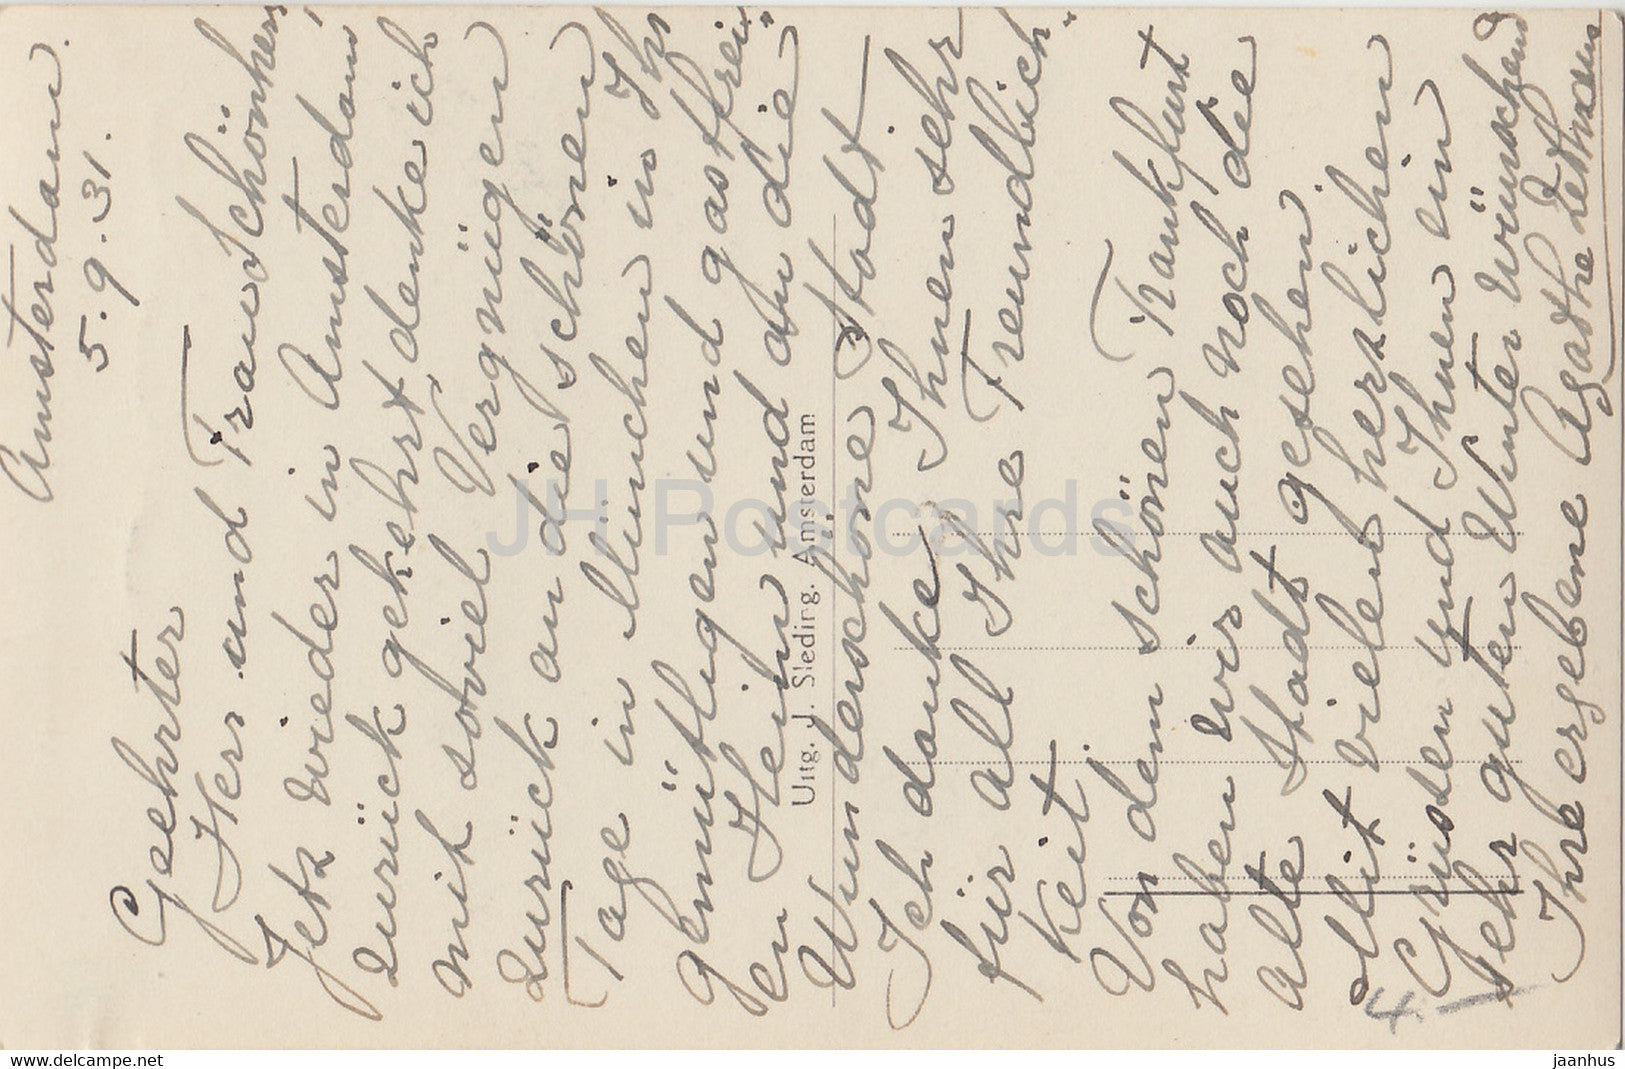 Amsterdam.
5.9.31.
Geehrter
Herr und Frau Schönherr
Jetz wieder in Amsterdam
zurück gekehrt, denke ich
mit soviel Vergnügen
zurück an die schönen
Tage in München in Ihr
gemütligen und gastfrei-
en Heim und an die
Wunderschöne Stadt.
Ich danke Ihnen sehr
für all Ihre Freundlich-
keit.
Von dem schönen Frankfurt
haben wir auch noch die
alte Stadt gesehen.
Mit vielen herzlichen
Grüsen und Ihnen ein
sehr guten Winter wünschend
Ihre ergebene Agathe
4.-
Uitg. J. Sleding. Amsterdam
JH Postcards
www.delcampe.net
jaanhus